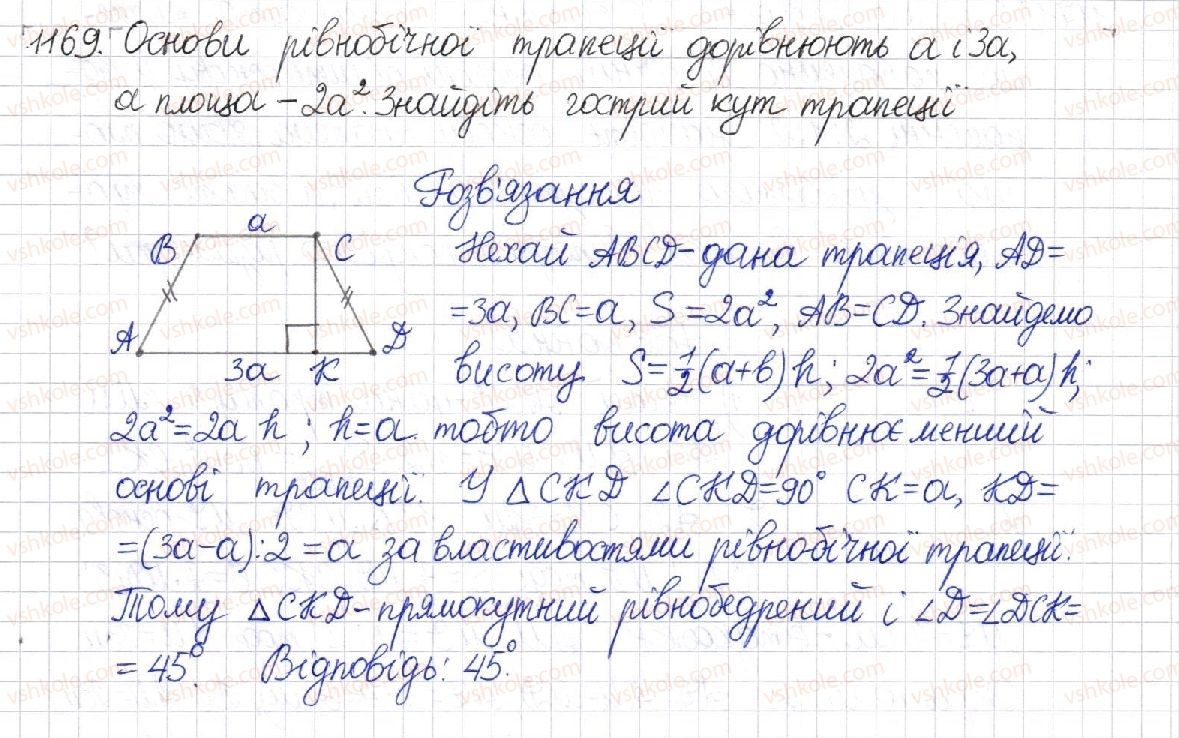 1169. Основи рівнобічної трапеції дорівнюють a і 3a,
а площа – 2a². Знайдіть гострий кут трапеції
Розв'язання
a
B C
A D
3a K
Нехай ABCD – дана трапеція, AD=
=3a, BC=a, S=2a², AB=CD. Знайдемо
висоту S=1/2(a+b)h; 2a²=1/2(3a+a)h;
2a²=2a h; h=a. тобто висота дорівнює меншій
основі трапеції. У △CKD ∠CKD=90° CK=a, KD=
=(3a-a):2=a за властивостями рівнобічної трапеції.
Тому △CKD – прямокутний рівнобедрений і ∠D=∠DCK=
=45°. Відповідь: 45°.
vshkole.com